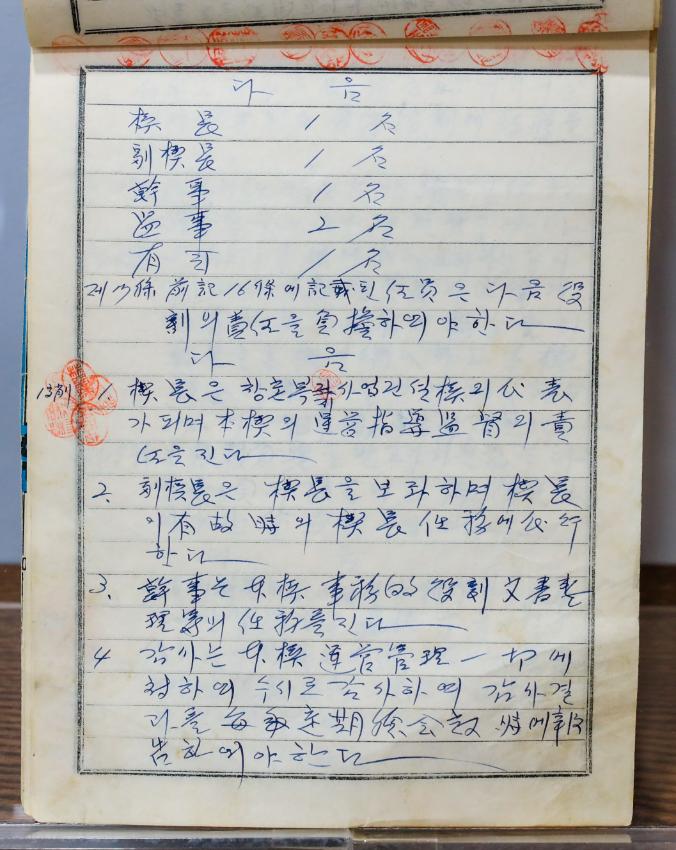 다 음
楔長 1名
副楔長 1名
幹事 1名
監事 2名
有司 1名
제17條 前記 16條에 記載된 任員은 다음 役
割의 責任을 負擔하여야 한다
다 음
1. 楔長은 楔의 代表
가 되며 本楔의 運營指導監督의 責
任을 진다
2. 副楔長은 楔長을 보좌하며 楔長
이 有故時의 楔長 任務에 代行
한다
3. 幹事는 本楔 事務的 役割 文書整
理等의 任務를 진다
4 감사는 本楔 運営管理 一切에
하여 수시로 감사하여 감사결
과를 每年 定期總会 時에 報
告하여야 한다